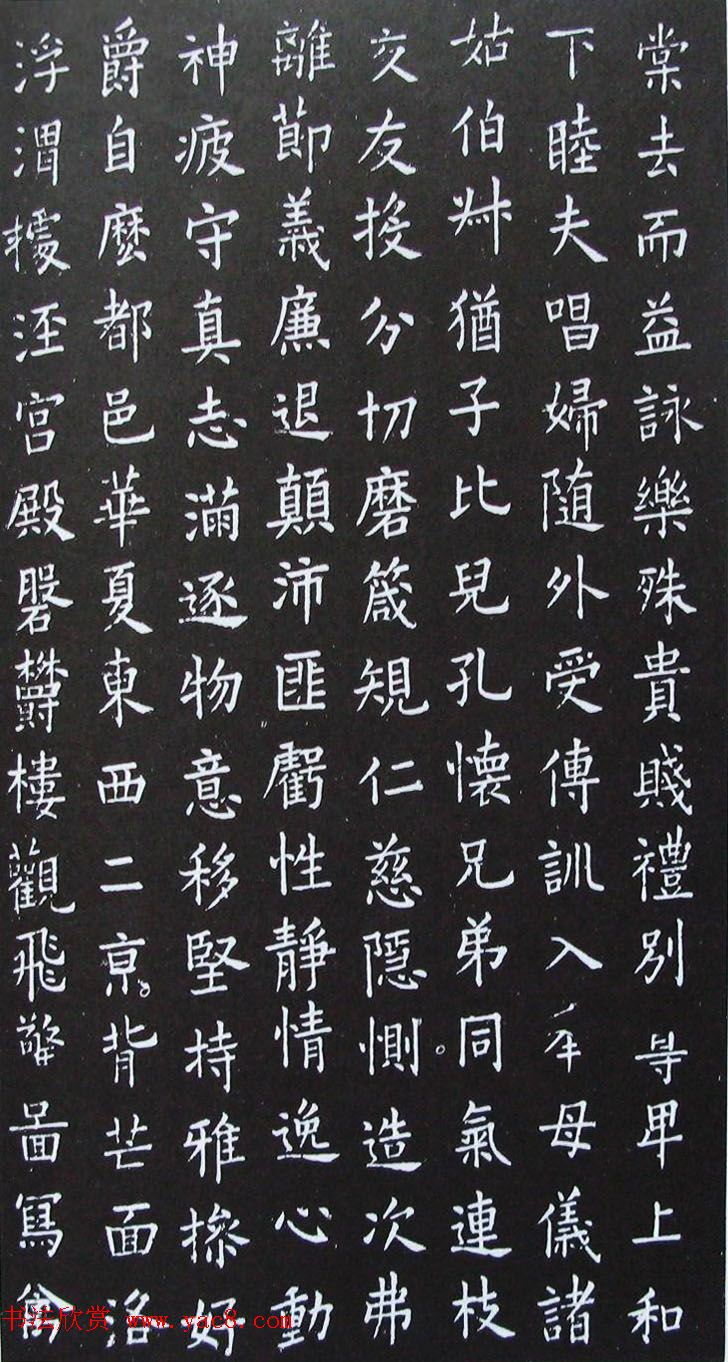 棠去而益詠樂殊貴賤禮別尊卑上和
下睦夫唱婦隨外受傅訓入奉母儀諸
姑伯叔猶子比兒孔懷兄弟同氣連枝
交友投分切磨箴規仁慈隱惻造次弗
離節義廉退顛沛匪虧性靜情逸心動
神疲守真志滿逐物意移堅持雅操好
爵自縻都邑華夏東西二京背芒面洛
浮渭據涇宮殿磐鬱樓觀飛驚圖寫禽
书法欣赏 www.yac8.com